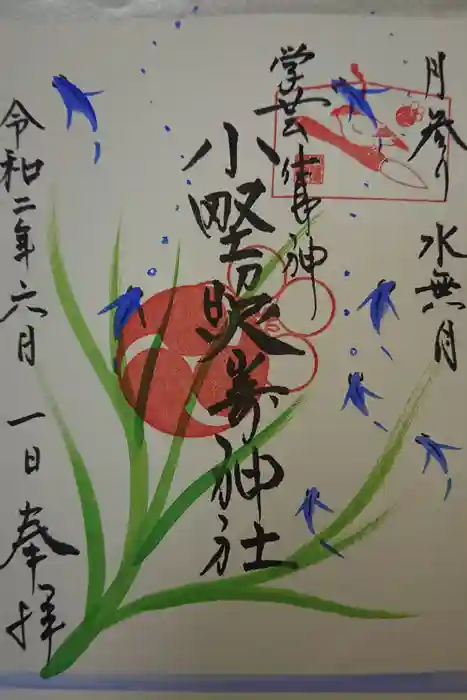 月参り 水無月
学芸書神
小野照崎神社
令和二年六月一日奉拝